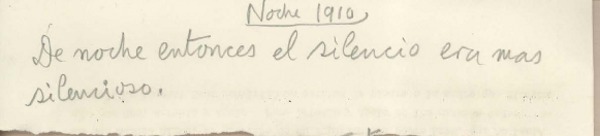 Noche 1910
De noche entonces el silencio era mas
silencioso.